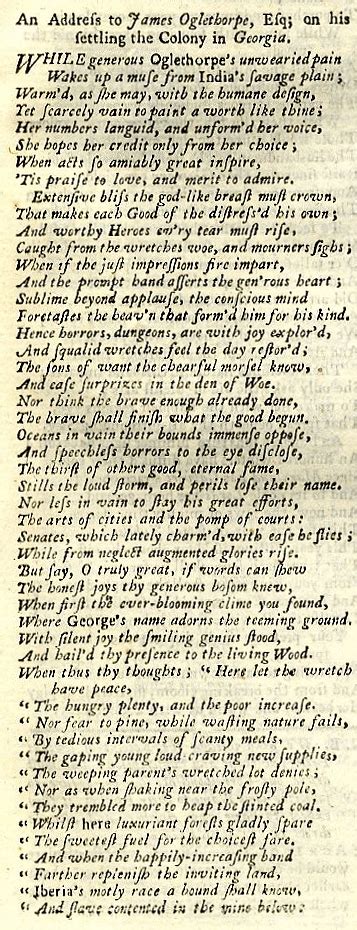 An Addreſs to James Oglethorpe, Eſq; on his
ſettling the Colony in Georgia.
WHILE generous Oglethorpe's unwearied pain
Wakes up a muſe from India's ſavage plain;
Warm'd, as ſhe may, with the humane deſign,
Yet ſcarcely vain to paint a worth like thine;
Her numbers languid, and unform'd her voice,
She hopes her credit only from her choice;
When acts ſo amiably great inſpire,
'Tis praiſe to love, and merit to admire.
Extenſive bliſs the god-like breaſt muſt crown,
That makes each Good of the diſtreſs'd his own;
And worthy Heroes ev'ry tear muſt riſe,
Caught from the wretches woe, and mourners ſighs;
When if the juſt impreſſions fire impart,
And the prompt hand aſſerts the gen'rous heart;
Sublime beyond applauſe, the conſcious mind
Foretaſtes the heav'n that form'd him for his kind.
Hence horrors, dungeons, are with joy explor'd,
And ſqualid wretches feel the day reſtor'd;
The ſons of want the chearful morſel know,
And eaſe ſurprizes in the den of Woe.
Nor think the brave enough already done,
The brave ſhall finiſh what the good begun.
Oceans in vain their bounds immenſe oppoſe,
And ſpeechleſs horrors to the eye diſcloſe,
The thirſt of others good, eternal fame,
Stills the loud ſtorm, and perils loſe their name.
Nor leſs in vain to ſtay his great efforts,
The arts of cities and the pomp of courts:
Senates, which lately charm'd, with eaſe he flies;
While from neglect augmented glories riſe.
But ſay, O truly great, if words can ſhew
The honeſt joys thy generous boſom knew,
When firſt the ever-blooming clime you found,
Where George's name adorns the teeming ground.
With ſilent joy the ſmiling genius ſtood,
And hail'd thy preſence to the living Wood.
When thus thy thoughts; "Here let the wretch
have peace,
"The hungry plenty, and the poor increaſe.
"Nor fear to pine, while waſting nature fails,
"By tedious intervals of ſcanty meals,
"The gaping young loud craving new ſupplies,
"The weeping parent's wretched lot denies;
"Nor as when ſhaking near the froſty pole,
"They trembled more to heap the ſtinted coal.
"Whilſt here luxuriant foreſts gladly ſpare
"The ſweeteſt fuel for the choiceſt fare.
"And when the happily-increaſing band
"Farther repleniſh the inviting land,
"Iberia's motly race a bound ſhall know,
"And ſlave contented in the mine below: